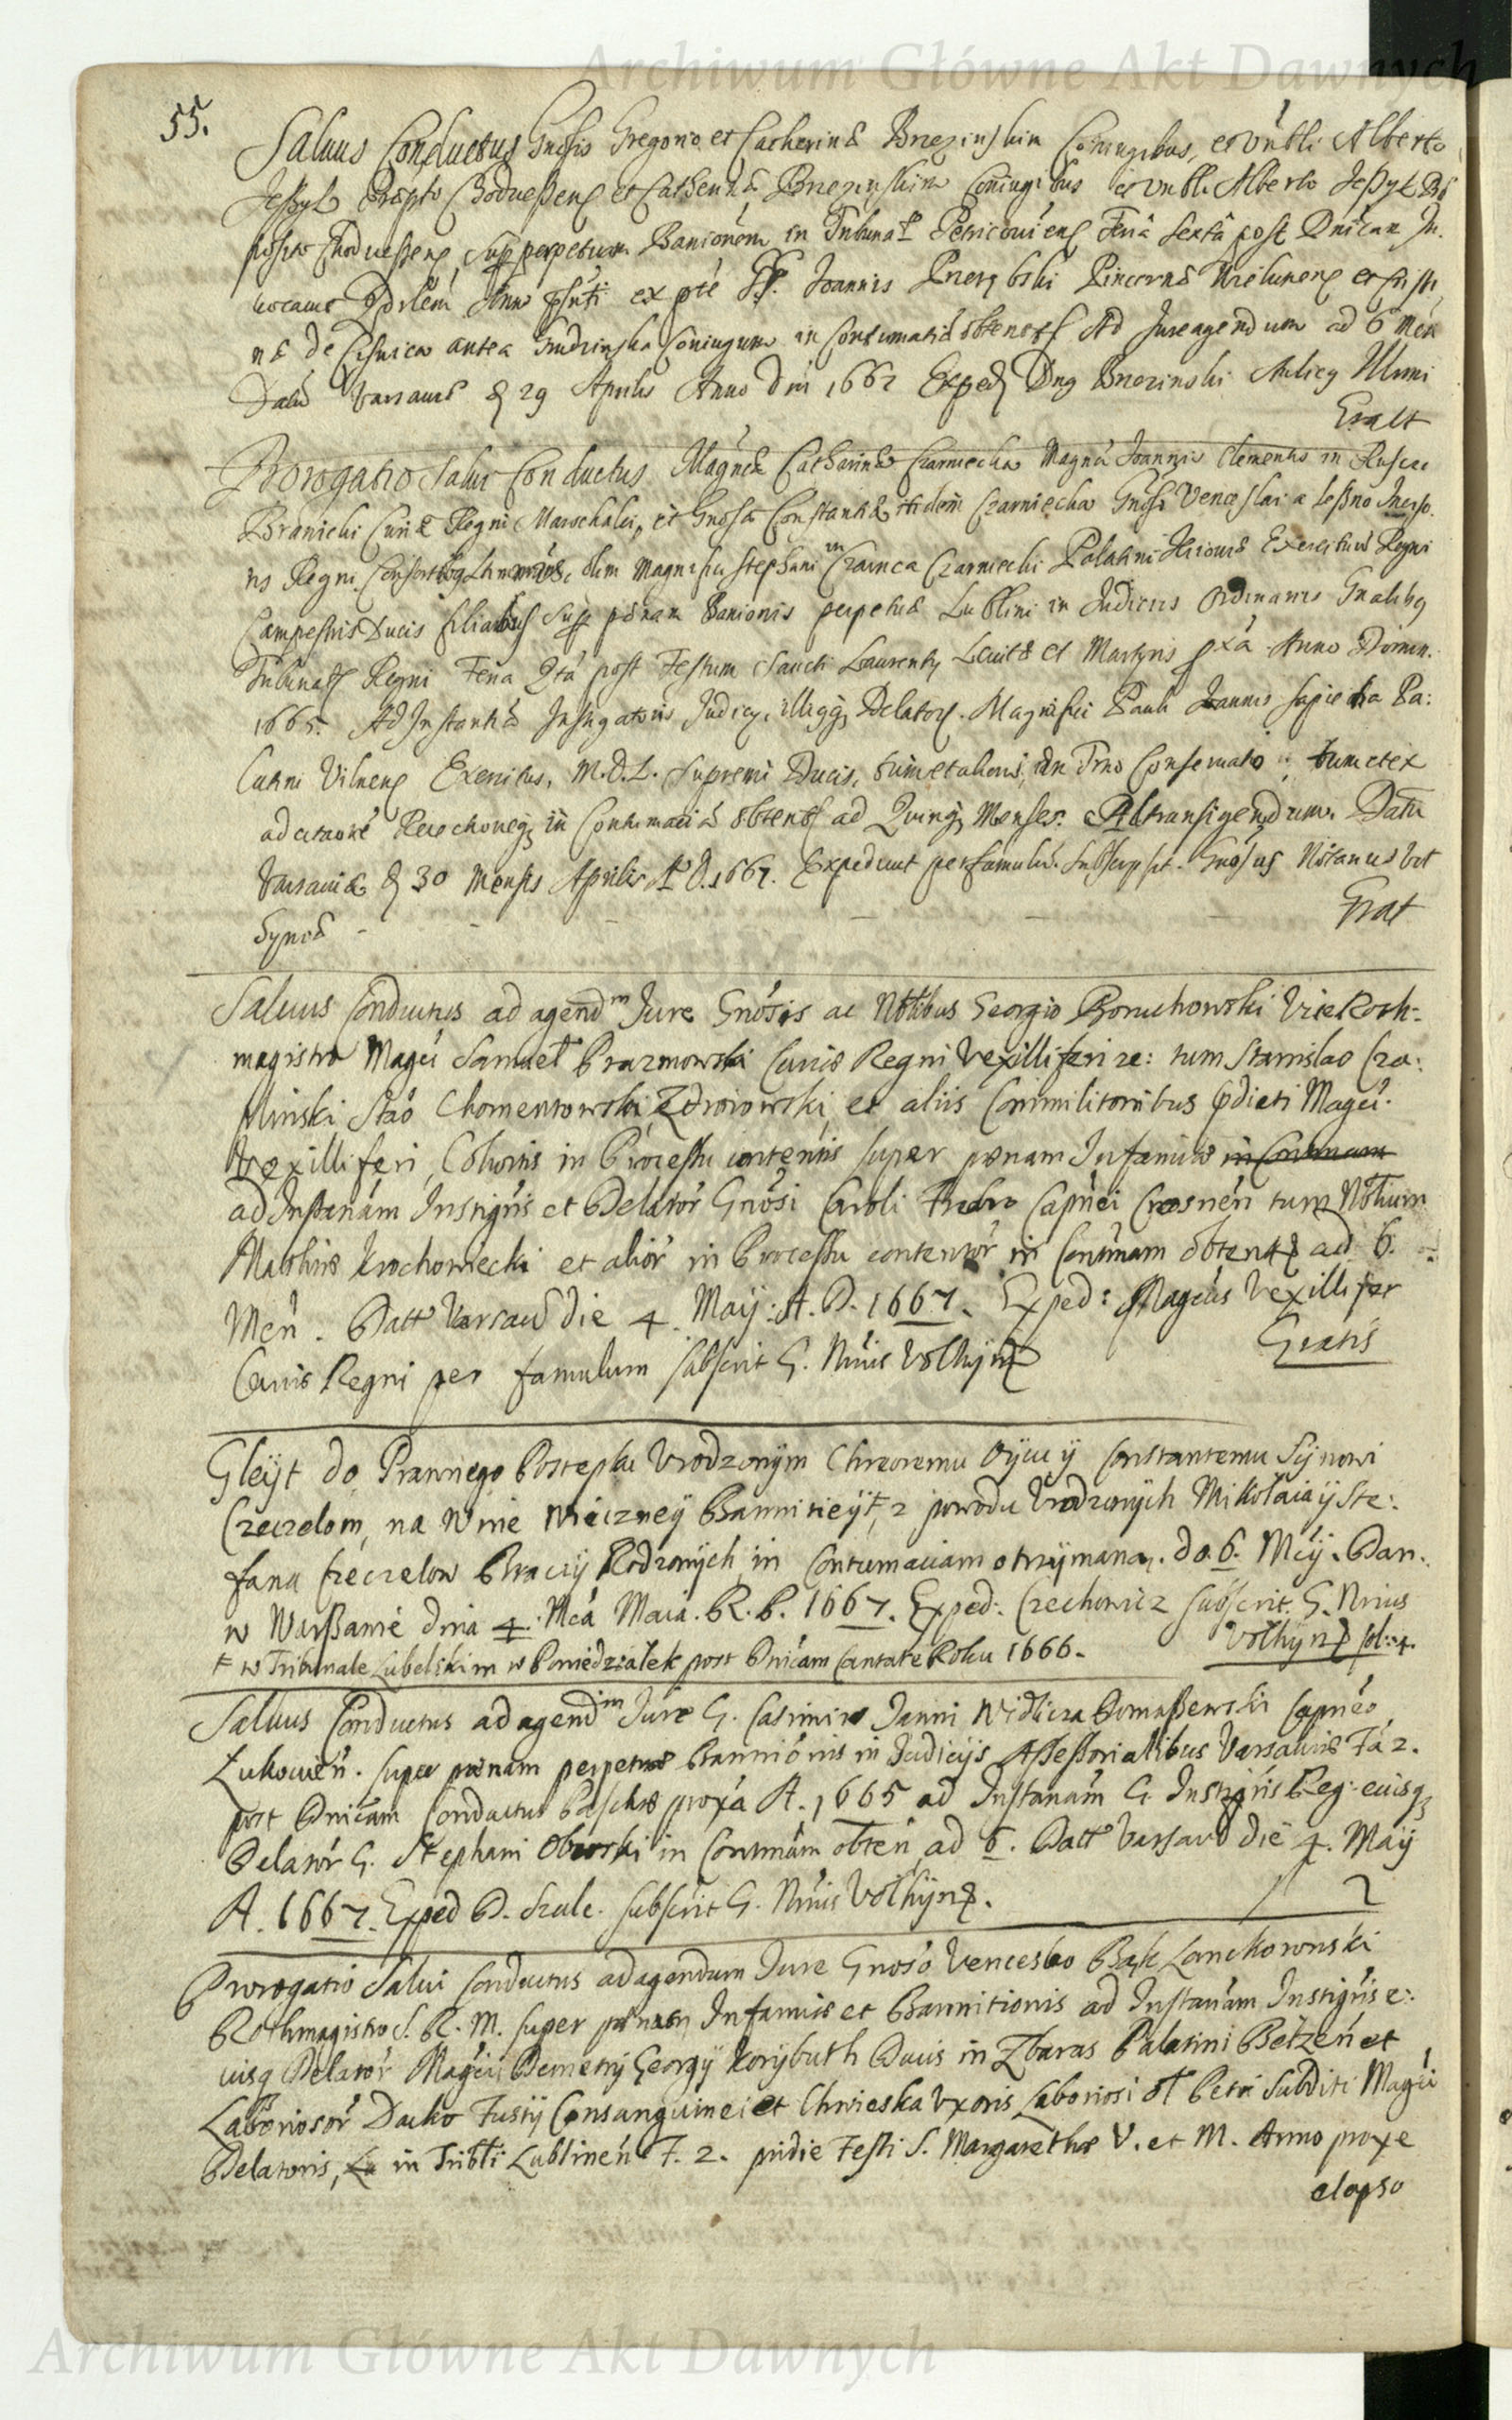 Archiwum Główne Akt Dawnych
55.
Saluus Conductus Gnosis Gregorio et Catherinæ Brzezinskim Coniugibus, et Nobli Alberto
Præpto Chodvessens et Catherinæ Brzezinskim Coniugibus et Nobli Alberto
posito Chodvessens, sup perpetuæ Banionem in Tribunal Petricouiens Feria Sexta post Dnicam In-
uocauit ex pte Joannis Pincernæ Wielunens et Christi,
næ de antea Coniugum in Contumatiã obtent Ad Jure agendum ad 6 Men
Datũ Varsauiæ D 29 Aprilis Anno Dni 1667 Exped Dng Brzezinski Aulicg Illmi
Prorogatio Salui Conductus Magncæ Catharinæ Czarniecka Magnci Joannis Clementis in Ruscze
Branicki Curiæ Regni Marschalci, et Gnosæ Constantiæ itidem Czarniecka Gnosi Venceslai a Lessno Incis-
ris Regni Consortibg olim Magnifici Stephani in Czarnca Czarniecki Palatini Kiiouiæ Exercituũ Regni
Campestris Ducis filiabus Sup pænam Banionis perpetuæ Lublini in Judiciis Ordinariis Gnalibg
Tribunals Regni Feria Qta post Festum Sancti Laurenty Leuitæ et Martyris pxa Anno Domin.
1665. Ad Instantiã Instigatoris Judicy, illiqg Delators. Magnifici Pauli Joannis Sapieha Pa:
latini Vilnens Exercitus, M.D.L. Supremi Ducis, tum et
in Contumaciã obtents ad Quinqg Menses. Ad transigendum. Datũ
Varsauiæ D 30 Mensis Aprilis A D. 1667. Expediuit per famulũ. Subscripsit. Gnosus Notarius
Grat
Saluus Conductus ad agendm Jure Gnosis ac Nobibus Georgio Boruchowski Vice Roth-
magistro Magci Samuel Prazmowski Curiæ Regni Vexilliferi re: tum Stanislao Cza:
plinski Stao Chomentowski, Zdroiowski, et aliis Commilitonibus pdicti Magci.
Vexilliferi, Cohortis in Processu contentis super pænam Infamiæ in Contumam
ad Instanam Instigris et Delator Gnosi Caroli Fredro Capnei Crosnen tum Nobium
Mathiæ Krochowiecki et alior in Processu contentor in Contumam obtents ad 6.
Men. Datt Varsau die 4. Maij. A. D. 1667. Exped: Magcus Vexillifer
Curiæ Regni per famulum subscrit G. Nrius Volhyns
Gratis
Gleijt do Prawnego Postepku Vrodzonijm Chwedoremu Oijcu ij Constantemu Sijnowi
Czeczelom, na Winie Wieczneij Bannitieij, z powodu Vrodzonijch Mikołaia ij Ste:
fana Czeczelow Braciij Rodzonijch, in Contumaciam otrzijmana. do. 6. Mcij. Dan.
w Warszawie dnia 4. Mca Maia. R. P. 1667. Exped: Czechowicz subscrit. G. Nrius
Volhijns sol: 4.
w Tribunale Lubelskim w Poniedziałek post Dnicam Cantate Roku 1666.
Saluus Conductus ad agendm Jure G. Casimiro Janni Domaszewski Capneo
Lukouien. super pænam perpetuæ Bannionis in Judicijs Assessorialibus Varsauiæ Fa 2.
post Dnicam Conductus Paschæ proxa A. 1665 ad Instanam G. Instigris Reg: eiusq
Delator G. Stephani Oborski in Contumam obten ad 6. Datt Varsau die 4. Maij
A. 1667. Exped D. Szulc. subscrit G. Nrius Volhijns.
2
Prorogatio Salui Conductus ad agendum Jure Gnoso Venceslao Bąk Lanckoronski
Rothmagistro S. R. M. super pænam Infamiæ et Bannitionis ad Instanam Instigris e:
iusq Delator Magci Demetrij Georgij Korijbuth Ducis in Zbaras Palatini Belzen et
Laboriosor Dacko Fustij Consanguinei et Chwieska Vxoris Laboriosi ol Petri Subditi Magci
Delatoris, in Tribli Lublinen F. 2. pridie Festi S. Margarethæ V. et M. Anno proxe
elapso
Archiwum Główne Akt Dawnych